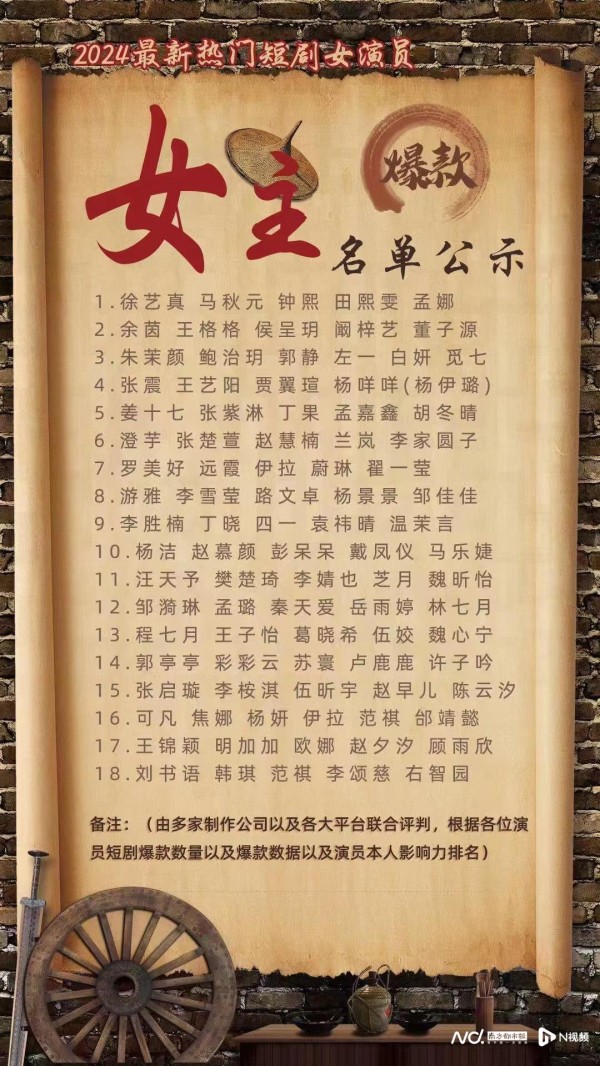 2024最新热门短剧女演员
女主
爆款
名单公示
1.徐艺真 马秋元 钟熙 田熙雯 孟娜
2.余茵 王格格 侯呈玥 阚梓艺 董子源
3.朱茉颜 鲍治玥 郭静 左一 白妍 觅七
4.张震 王艺阳 贾翼瑄 杨咩咩(杨伊璐)
5.姜十七 张紫淋 丁果 孟嘉鑫 胡冬晴
6.澄芋 张楚萱 赵慧楠 兰岚 李家圆子
7.罗美好 远霞 伊拉 蔚琳 翟一莹
8.游雅 李雪莹 路文卓 杨景景 邹佳佳
9.李胜楠 丁晓 四一 袁祎晴 温茉言
10.杨洁 赵慕颜 彭呆呆 戴凤仪 马乐婕
11.汪天予 樊楚琦 李婧也 芝月 魏昕怡
12.邹漪琳 孟璐 秦天爱 岳雨婷 林七月
13.程七月 王子怡 葛晓希 伍姣 魏心宁
14.郭亭亭 彩彩云 苏寰 卢鹿鹿 许子吟
15.张启璇 李桉淇 伍昕宇 赵早儿 陈云汐
16.可凡 焦娜 杨妍 伊拉 范祺 邰靖懿
17.王锦颖 明加加 欧娜 赵夕汐 顾雨欣
18.刘书语 韩琪 范祺 李颂慈 右智园
备注：（由多家制作公司以及各大平台联合评判，根据各位演
员短剧爆款数量以及爆款数据以及演员本人影响力排名）
N视频